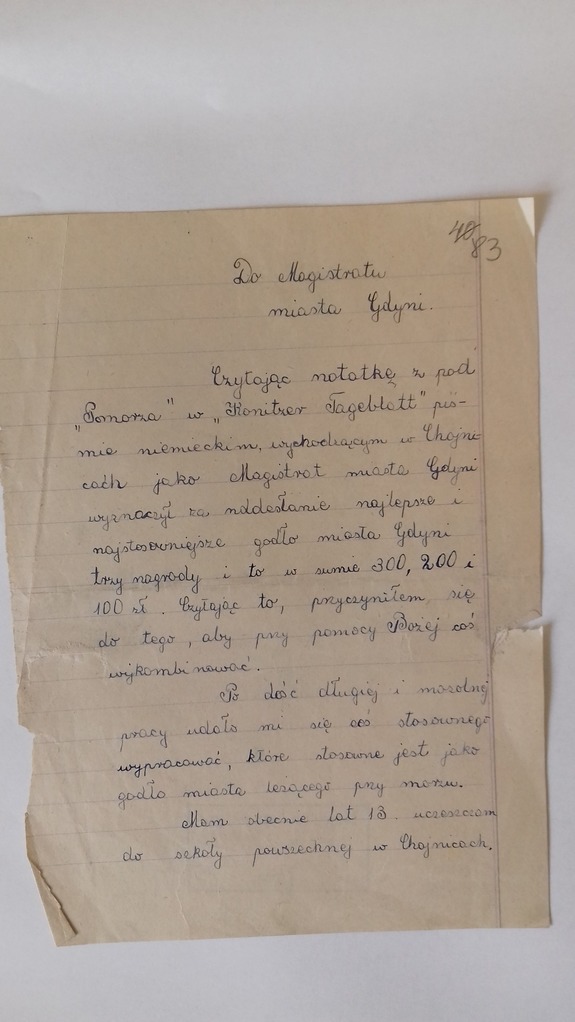 40 83
Do Magistratu
miasta Gdyni.
Czytając notatkę z pod
"Pomorza" w „Konitzer Tageblatt" piś-
mie niemieckim, wychodzącym w Chojni-
cach jako Magistrat miasta Gdyni
wyznaczył za nddesłanie najlepsze i
najstosowniejsze godło miasta Gdyni
trzy nagrody i to w sumie 300, 200 i
100 zł. Czytając to, przyczyniłem się
do tego, aby przy pomocy Bożej coś
wykombinować.
Po dość długiej i mozolnej
pracy udało mi się coś stosownego
wypracować, które stosowne jest jako
godło miasta leżącego przy morzu.
Mam obecnie lat 13. uczęszczam
do szkoły powszechnej w Chojnicach.